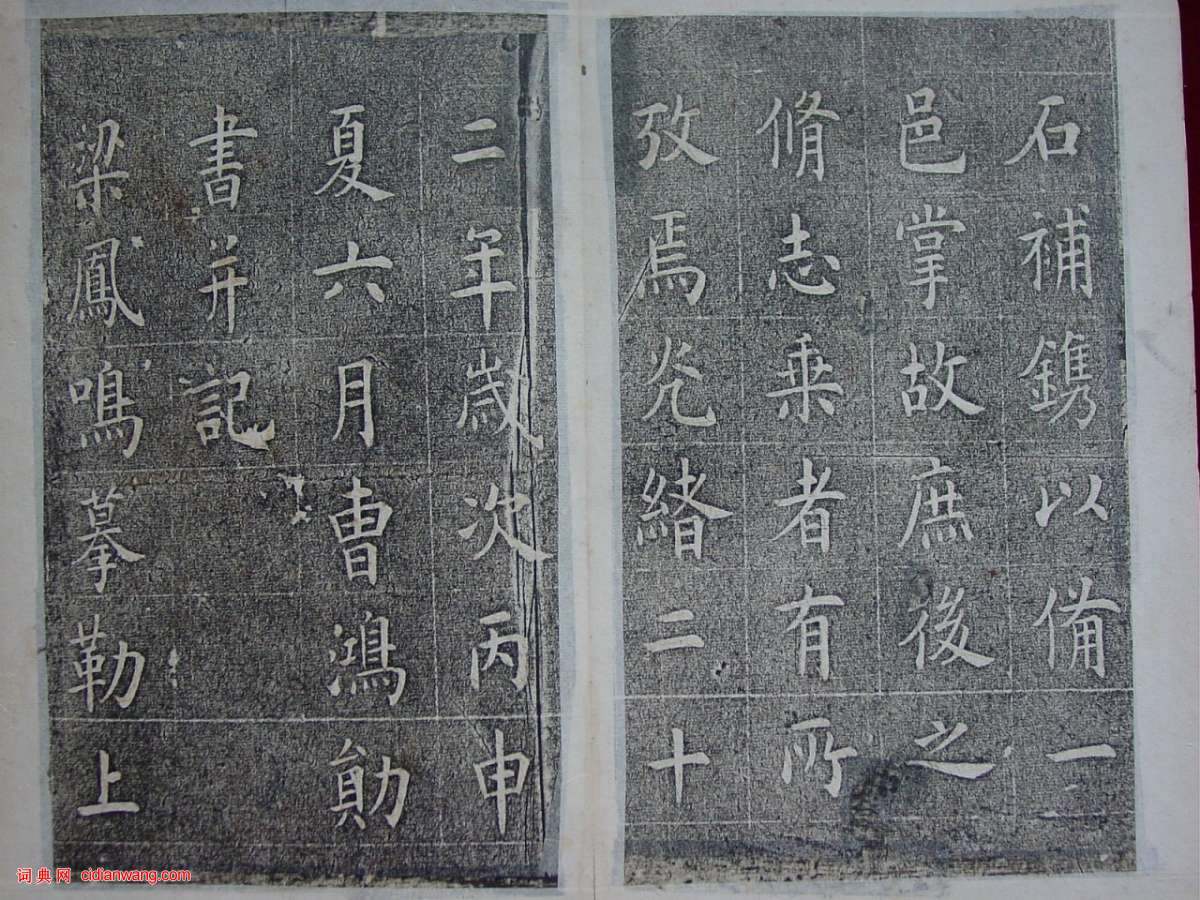 石補鐫以備一
邑掌故庶後之
脩志乗者有所
攷焉光緒二十
二年歲次丙申
夏六月曹鴻勛
書并記
梁鳳鳴摹勒上
词典网 cidianwang.com